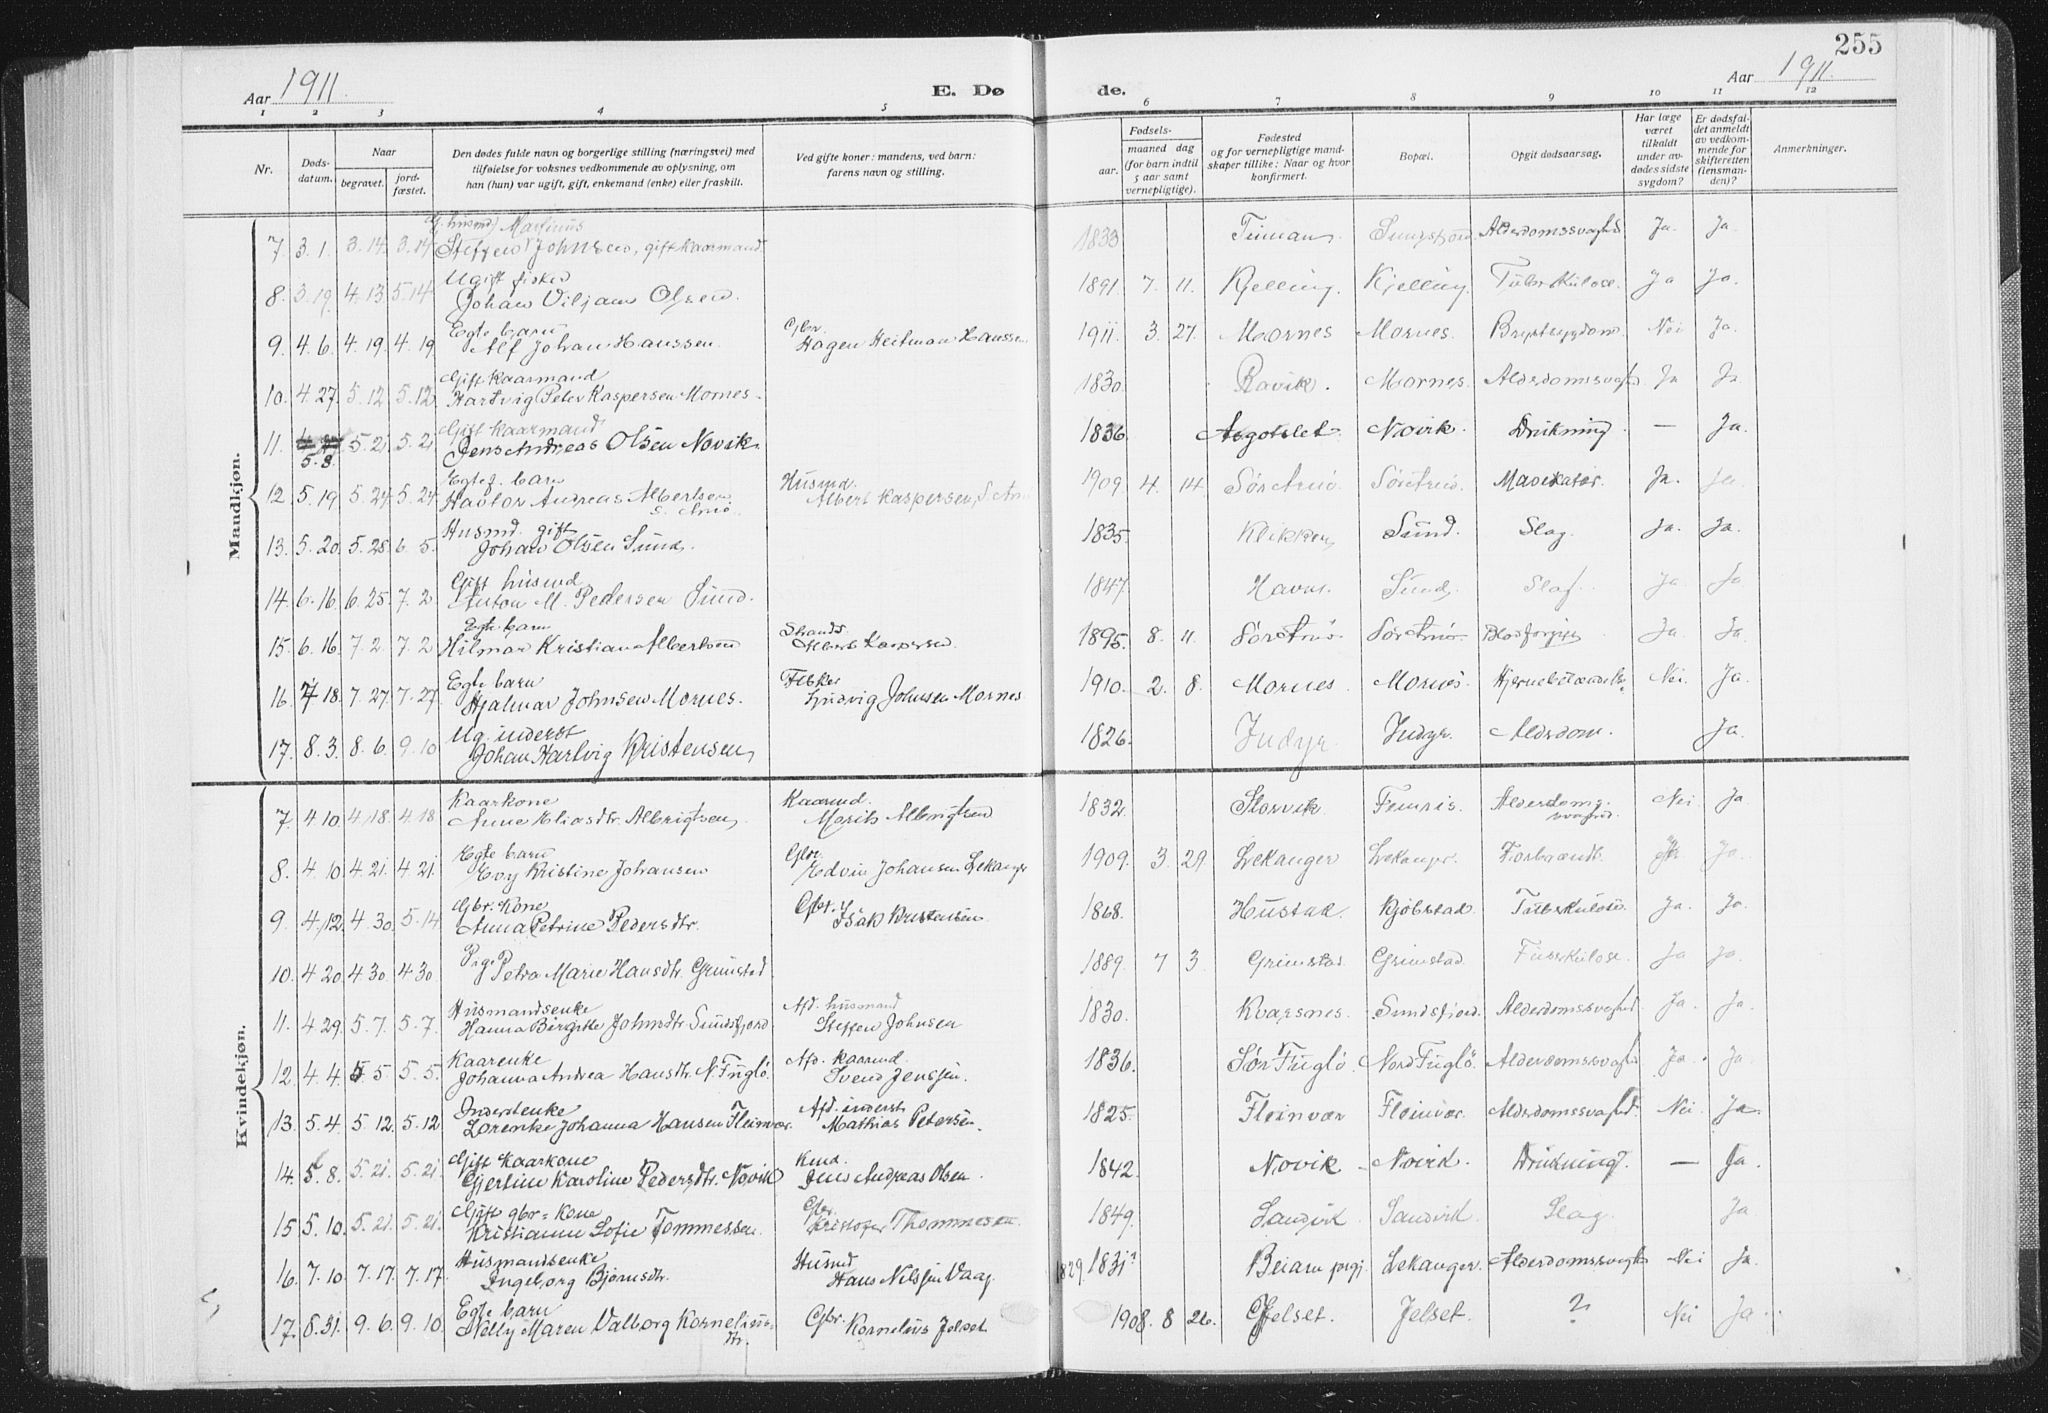 255
Aar 1911.
E. Dø
de.
Aar 1911.
1 2 3 4 5 6 7 8 9 10 11 12
Nr.
Døds-
datum.
Naar
begravet.
jord-
fæstet.
Den dødes fulde navn og borgerlige stilling (næringsvei) med
tilføielse for voksnes vedkommende av oplysning, om
han (hun) var ugift, gift, enkemand (enke) eller fraskilt.
Ved gifte koner: mandens, ved barn:
farens navn og stilling.
Fødsels-
aar.
maaned dag
(for barn indtil
5 aar samt
vernepligtige).
Fødested
og for vernepligtige mand-
skaper tillike: Naar og hvor
konfirmert.
Bopæl.
Opgit dødsaarsag.
Har læge
været
tilkaldt
under av-
dødes sidste
sygdom?
Er dødsfal-
det anmeldt
av vedkom-
mende for
skifteretten
(lensman-
den)?
Anmerkninger.
Mandkjøn.
G. husmd Martinus
7. 3. 1. 3. 14. 3. 14 Steffen Johnsen, gift kaarmand 1833 Sundsfjord. Alderdomssvaghed Ja. Ja.
Ugift fisker
8. 3. 19. 4. 13. 5. 14 Johan Viljam Olsen. 1891. 7. 11. Kjelling. Kjelling. Tuberkulose. Ja Ja.
Egte barn Gbr.
9. 4. 6. 4. 19. 4. 19 Alf Johan Hanssen. Hagen Heitman Hanssen 1911. 3. 27. Mornes Mornes. Brystsygdom. Nei Ja.
Gift kaarmand
10. 4. 27. 5. 12. 5. 12. Hartvig Peter Kaspersen Mornes. 1830. Ravik. Mornes. Alderdomssvaghed Ja Ja
Gift kaarmand
11. 5. 8. 5. 21. 5. 21 Jens Andreas Olsen Novik. 1836. Asgotslet. Novik. Drukning. — Ja.
Egte f. barn Husmd.
12. 5. 19. 5. 24. 5. 24. Havtor Andreas Albertsen S. Arnø. Albert Kaspersen, S. Arnø 1909. 4. 14. Sør Arnø. Sør Arnø. Mavekatar. Ja. Ja
Husmd. gift
13. 5. 20. 5. 28. 6. 5. Johan Olsen Sund. 1835. Klikken Sund. Slag. Ja. Ja.
Gift husmd
14. 6. 16. 6. 25. 7. 2 Anton M. Pedersen Sund. 1847. Sund. Slag. Ja Ja
Egte barn Strands.
15. 6. 16. 7. 2. 7. 2 Hilmar Kristian Albertsen Albert Kaspersen. 1895. 8. 11. Sør Arnø. Sør Arnø. Blodforgift Ja. Ja.
Egte barn Fisker
16. 7. 18. 7. 27. 7. 27. Hjalmar Johnsen Mornes. Ludvig Johnsen Mornes 1910. 2. 8. Mornes. Mornes. Hjernebetændelse. Nei. Ja.
Ug. inderst
17. 8. 3. 8. 6. 9. 10 Johan Hartvig Kristensen, 1826. Indyr Indyr. Alderdom. Ja.
Kvindekjøn.
Kaarkone Kaarmd.
7. 4. 10. 4. 18. 4. 18 Anne Eliasdtr. Albrigtsen, Morits Albrigtsen 1832. Storvik. Fenris. Alderdomssvaghed. Nei. Ja
Egte barn Gbr.
8. 4. 10 4. 21. 4. 21. Evy Kristine Johansen Edvin Johansen Lekanger 1909. 3. 29. Lekanger Lekanger. Forbrændt. Ja Ja.
Gbr. kone Gbr.
9. 4. 12. 4. 30. 5. 14 Anna Petrine Pedersdtr. Isak Kristensen. 1868. Hustad. Kjøbstad. Tuberkulose. Ja. Ja.
Pige
10. 4. 20. 4. 30. 4. 30. Petra Marie Hansdtr. Grimstad 1889. 7 3. Grimstad. Grimstad. Tuberkulose Ja Ja.
Husmandsenke Afd. husmand
11. 4. 29. 5. 7. 5. 7. Hanna Birgitte Johnsdtr. Sundsfjord. Steffen Johnsen 1830. Kvarsnes. Sundsfjord. Alderdomssvaghed Ja. Ja.
Kaarenke Afd. kaarmd.
12. 4. 4. 5. 5. 5. 5. Johanna Andrea Hansdtr. N. Fuglø. Svend Jenssen. 1836. Sør Fuglø. Nord Fuglø. Alderdomssvaghed Ja. Ja.
Inderstenke Afd. inderst
13. 5. 4. 5. 12. 5. 12 Lorentse Johanna Hansen Fleinvær. Mathias Petersen. 1825. Fleinvær Fleinvær. Alderdomssvaghed. Nei. Ja.
Gift kaarkone Kmd.
14. 5. 8. 5. 21. 5. 21 Gjertine Karoline Pedersdtr. Novik Jens Andreas Olsen. 1842. Novik. Novik. Drukning. — Ja.
Gift gbr. kone Gbr.
15. 5. 10. 5. 21. 5. 21. Kristianne Sofie Tommessen. Kristofer Thommesen 1849. Sandvik. Sandvik. Slag. Ja.
Husmandsenke Husmd
16. 7. 10. 7. 17. 7. 17. Ingeborg Bjørnsdtr. Hans Nilssen Vaag. 1829. 1831? Beiarn prgj. Lekanger. Alderdomssvaghed Nei Ja.
Egte barn
17. 8. 31. 9. 6. 9. 10 Nelly Maren Valborg Korneliusdtr. Gbr. Kornelius Jelset. 1908. 8 26. Jelset. Jelset. ? Nei Ja.